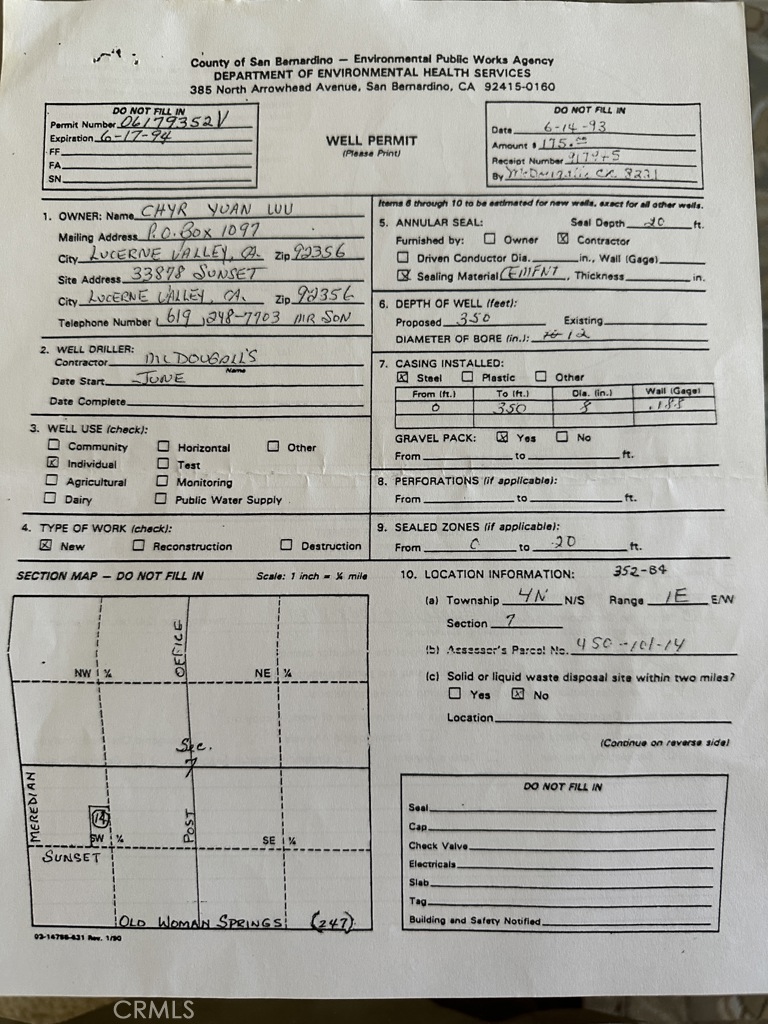 County of San Bernardino — Environmental Public Works Agency
DEPARTMENT OF ENVIRONMENTAL HEALTH SERVICES
385 North Arrowhead Avenue, San Bernardino, CA 92415-0160
DO NOT FILL IN
Permit Number 06179352V
Expiration 6-17-94
FF
FA
SN
WELL PERMIT
(Please Print)
DO NOT FILL IN
Date 6-14-93
Amount $ 175.00
Receipt Number
By
1. OWNER: Name CHYR YUAN LUU
Mailing Address P.O. BOX 1097
City LUCERNE VALLEY, CA. Zip 92356
Site Address 33878 SUNSET
City LUCERNE VALLEY, CA. Zip 92356
Telephone Number (619) 248-7703 MR SON
2. WELL DRILLER:
Contractor McDOUGALL'S
Name
Date Start JUNE
Date Complete
3. WELL USE (check):
Community Horizontal Other
☒ Individual Test
Agricultural Monitoring
Dairy Public Water Supply
4. TYPE OF WORK (check):
☒ New Reconstruction Destruction
Items 6 through 10 to be estimated for new wells, exact for all other wells.
5. ANNULAR SEAL: Seal Depth 20 ft.
Furnished by: Owner ☒ Contractor
Driven Conductor Dia. in., Wall (Gage)
☒ Sealing Material CEMENT, Thickness in.
6. DEPTH OF WELL (feet):
Proposed 350 Existing
DIAMETER OF BORE (in.): 12
7. CASING INSTALLED:
☒ Steel Plastic Other
From (ft.) To (ft.) Dia. (in.) Wall (Gage)
0 350 8 .188
GRAVEL PACK: ☒ Yes No
From to ft.
8. PERFORATIONS (if applicable):
From to ft.
9. SEALED ZONES (if applicable):
From 0 to 20 ft.
SECTION MAP — DO NOT FILL IN Scale: 1 inch = ¼ mile
OFFICE
NW ¼ NE ¼
Sec.
7
MEREDIAN
14
POST
SW ¼ SE ¼
SUNSET
OLD WOMAN SPRINGS (247)
03-14786-631 Rev. 1/90
10. LOCATION INFORMATION: 352-B4
(a) Township 4N N/S Range 1E E/W
Section 7
(b) Assessor's Parcel No. 450-101-14
(c) Solid or liquid waste disposal site within two miles?
Yes ☒ No
Location
(Continue on reverse side)
DO NOT FILL IN
Seal
Cap
Check Valve
Electricals
Slab
Tag
Building and Safety Notified
CRMLS